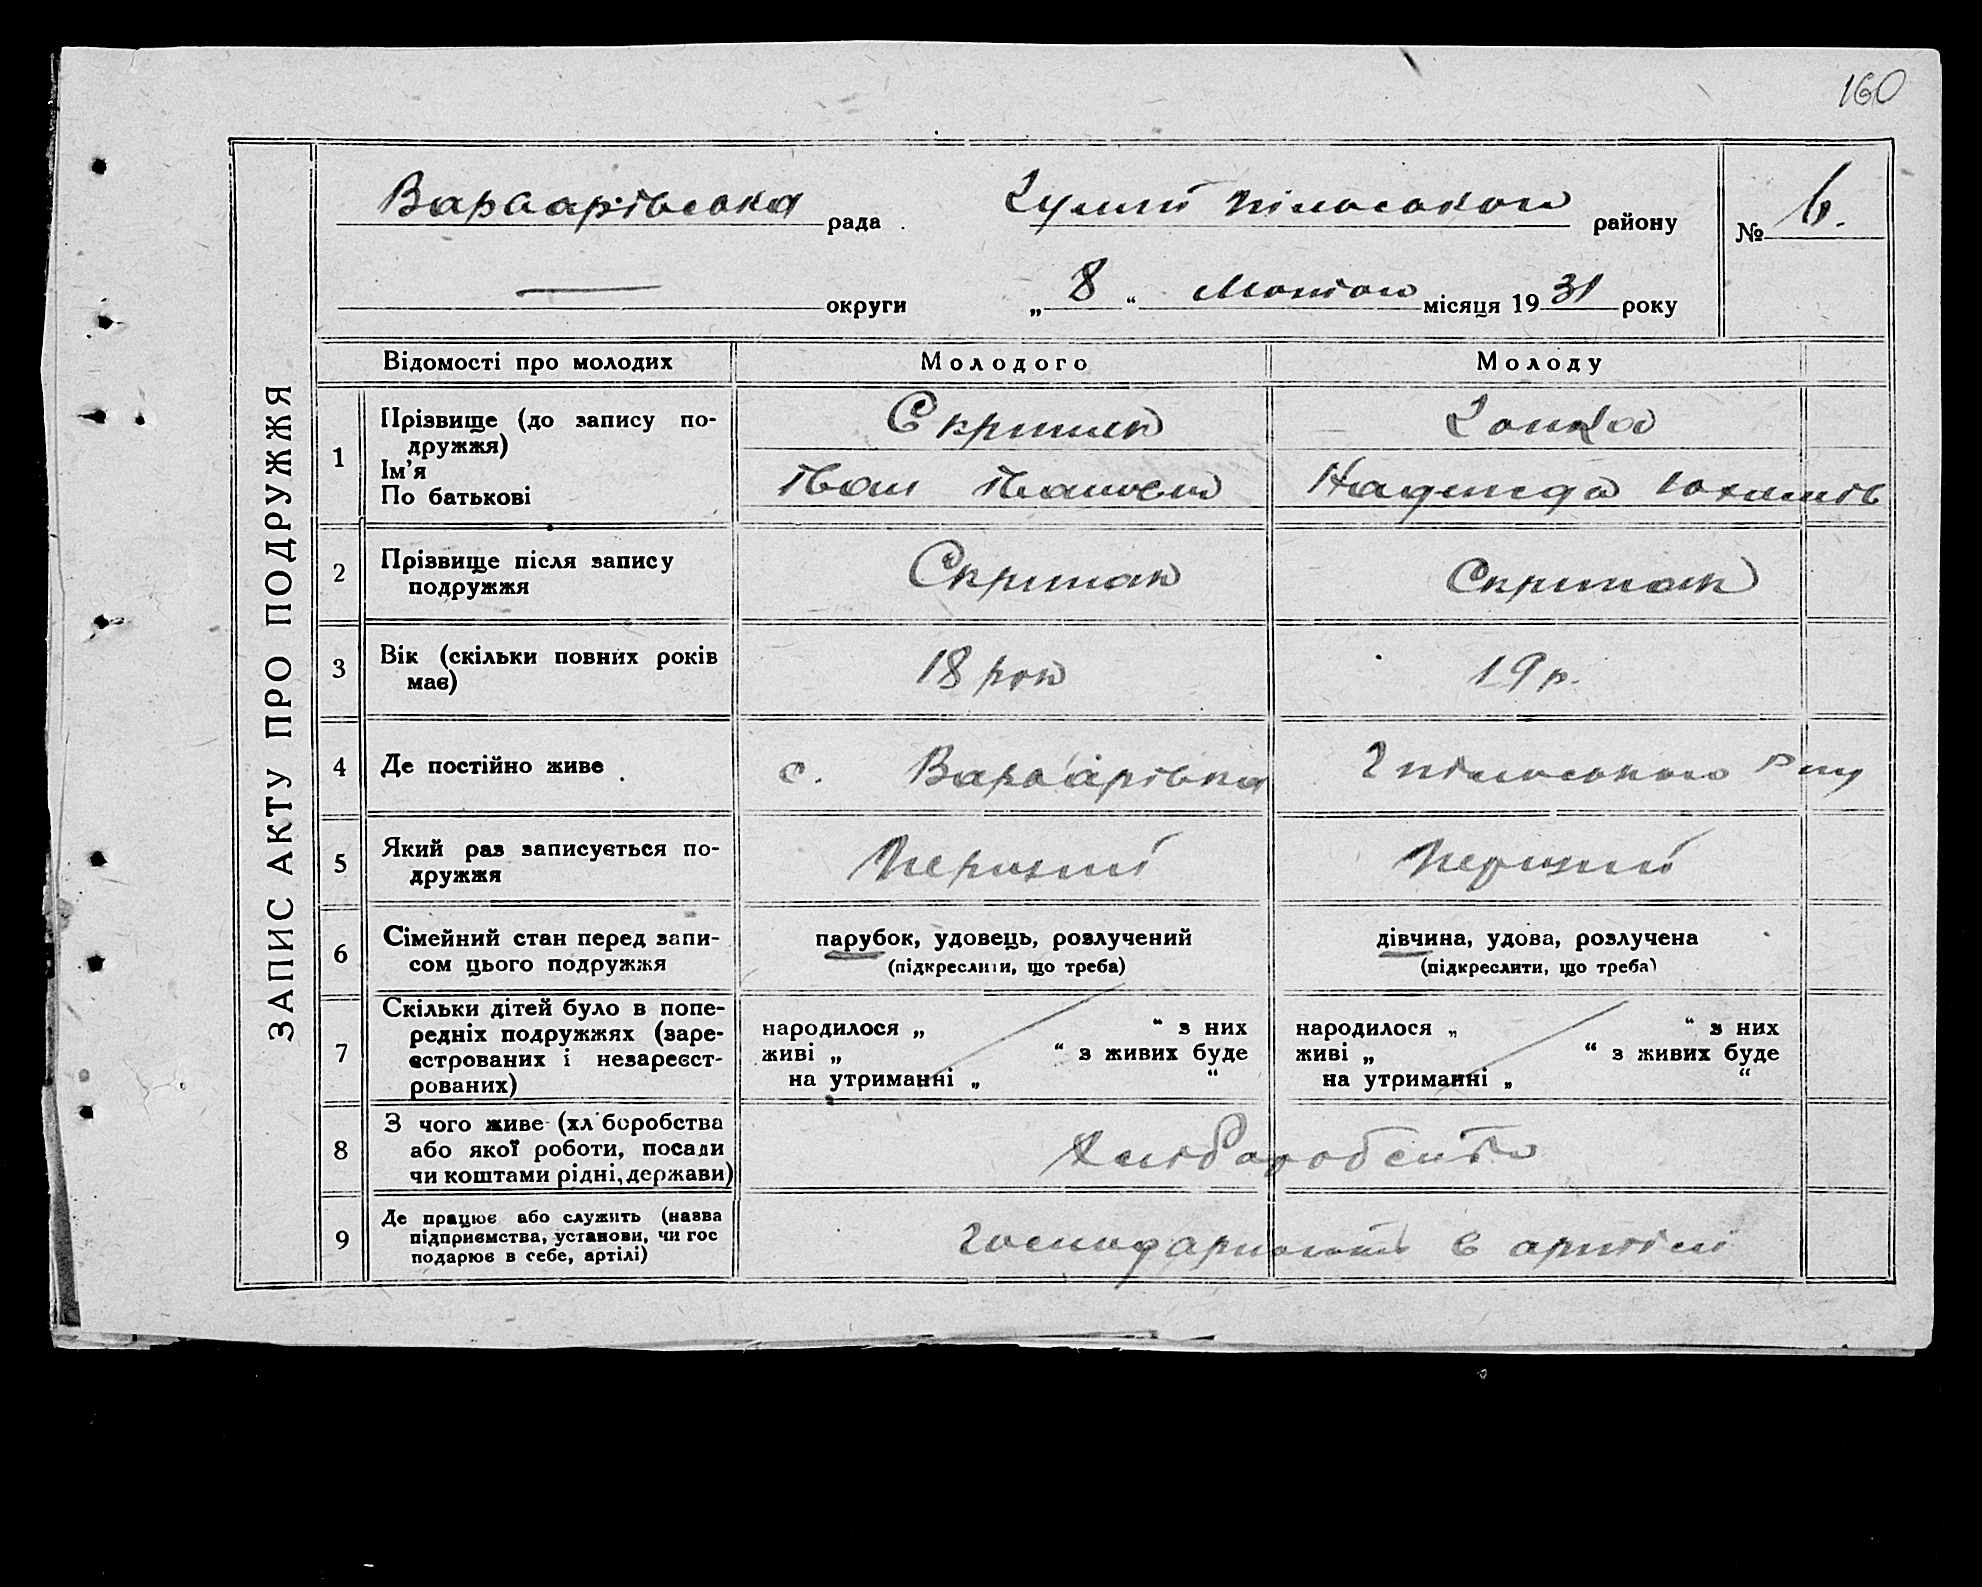 160
ЗАПИС АКТУ ПРО ПОДРУЖЖЯ
Варварівська рада Гуляй Пільського району № 6.
— округи „ 8 “ місяця 1931 року
Відомості про молодих Молодого Молоду
1 Прізвище (до запису по-
дружжя)
Ім’я
По батькові
Іван Надежда
2 Прізвище після запису
подружжя
Скрипак Скрипак
3 Вік (скільки повних років
має)
18 рок 19 р.
4 Де постійно живе с. Варварівка Гпільського р-ну
5 Який раз записується по-
дружжя
Перший Перший
6 Сімейний стан перед запи-
сом цього подружжя
парубок, удовець, розлучений
(підкреслити, що треба)
дівчина, удова, розлучена
(підкреслити, що треба)
7 Скільки дітей було в попе-
редніх подружжях (заре-
єстрованих і незареєст-
рованих)
народилося „ “ з них
живі „ “ з живих буде
на утриманні „ “
народилося „ “ з них
живі „ “ з живих буде
на утриманні „ “
8 З чого живе (хліборобства
або якої роботи, посади
чи коштами рідні, держави)
Хліборобство
9 Де працює або служить (назва
підприємства, установи, чи гос
подарює в себе, артілі)
Господарюють в артілі